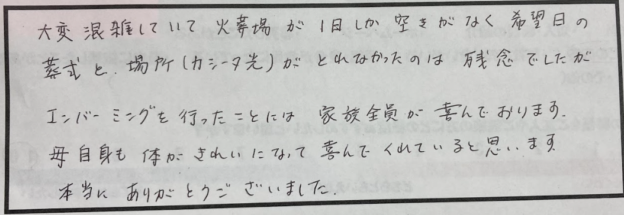 大変混雑していて 火葬場が 1日しか空きがなく 希望日の
葬式と、場所(カシータ光)が とれなかったのは 残念でしたが
エンバーミングを行ったことには 家族全員が 喜んでおります。
母自身も 体が きれいになって 喜んでくれていると思います
本当に ありがとうございました。